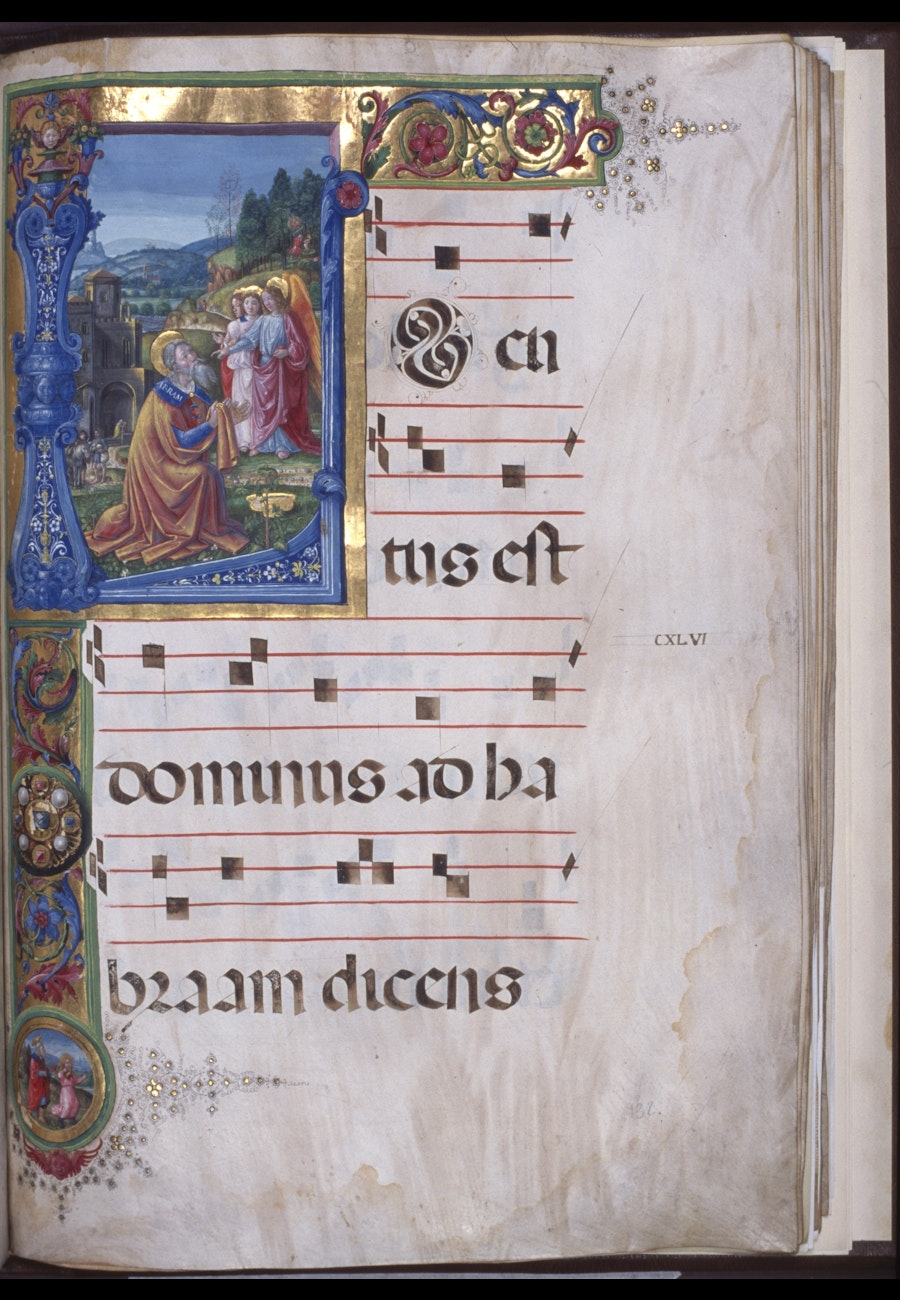 ABRAM
LOcu
tus est
dominus ad ha
braam dicens
CXLVI